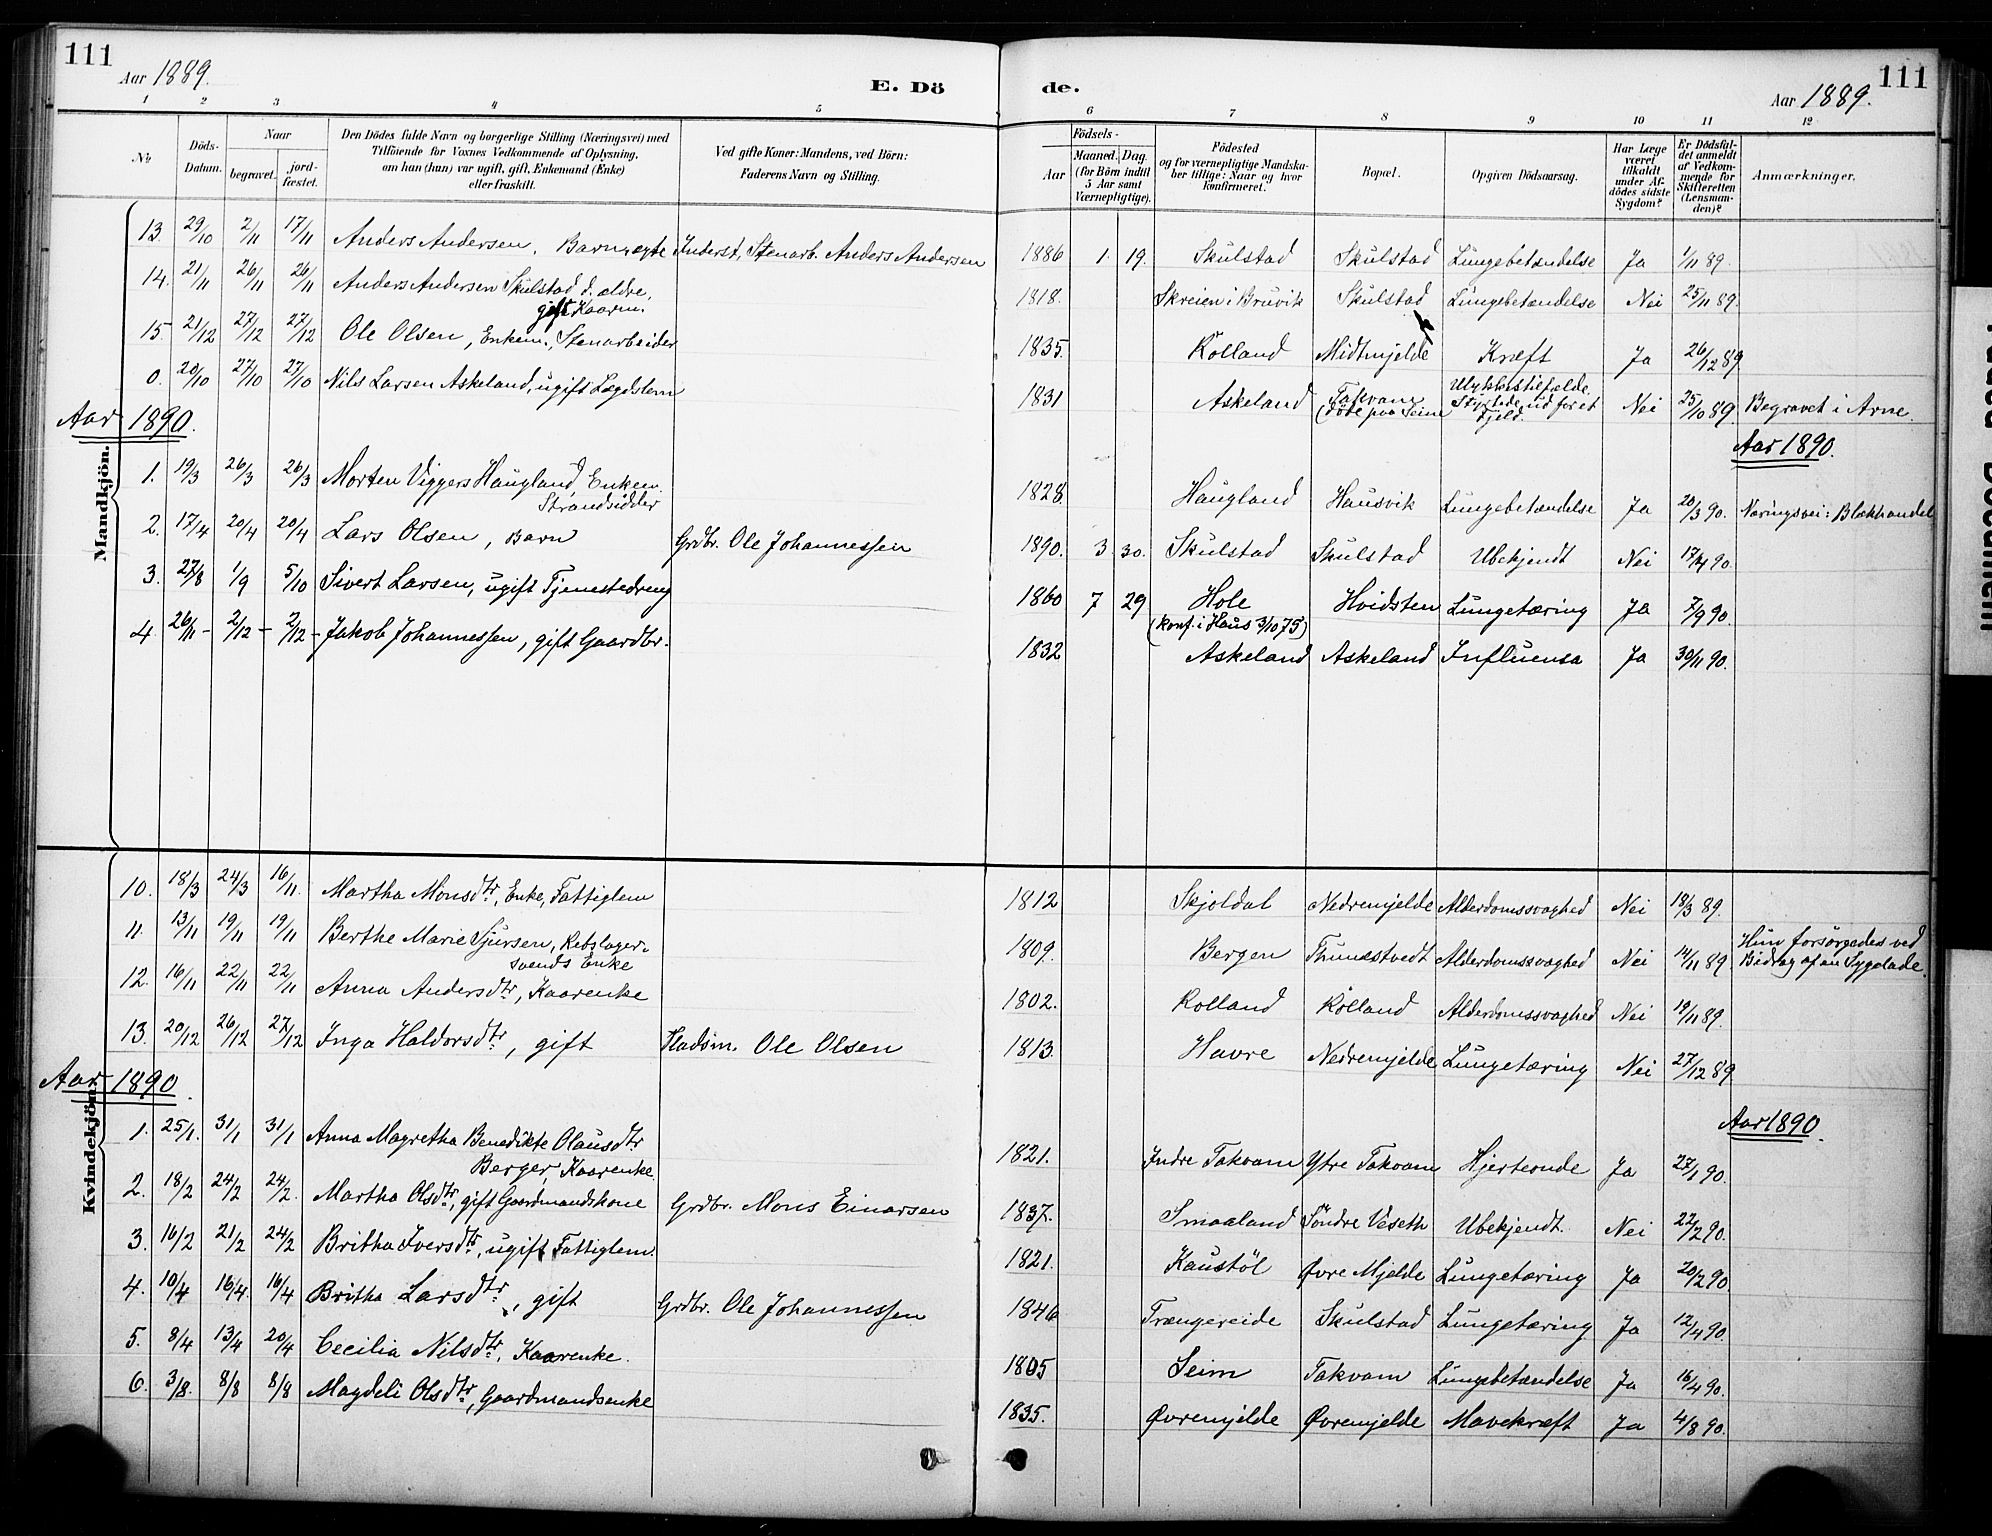 111
Aar 1889.
E. Dö
de.
Aar 1889.
111
1 2 3 4 5 6 7 8 9 10 11 12
№
Döds-Datum.
Naar
begravet.
jordfæstet.
Den Dödes fulde Navn og borgerlige Stilling (Næringsvei) med
Tilföiende for Voxnes Vedkommende af Oplysning,
om han (hun) var ugift, gift, Enkemand (Enke)
eller fraskilt.
Ved gifte Koner: Mandens, ved Börn:
Faderens Navn og Stilling.
Födsels-
Aar
Maaned. Dag.
(for Börn indtil
5 Aar samt
Værnepligtige).
Födested
og for værnepligtige Mandska-
ber tillige: Naar og hvor
konfirmeret.
Bopæl.
Opgiven Dödsaarsag.
Har Læge
været
tilkaldt
under Af-
dödes sidste
Sygdom?
Er Dödsfal-
det anmeldt
af Vedkom-
mende for
Skifteretten
(Lensman-
den)?
Anmærkninger.
Mandkjön.
13. 29/10 2/11 17/11 Anders Andersen, Barn, ægte Inderst, Stenarb. Anders Andersen 1886 1. 19. Skulstad Skulstad Lungebetændelse Ja 1/11 89.
14. 21/11 26/11 26/11 Anders Andersen Skulstad d. ældre, gift Kaarm. 1818. Skreien i Bruvik Skulstad Lungebetændelse Nei 25/11 89.
15. 21/12 27/12 27/12 Ole Olsen, Enkem., Stenarbeider 1835. Kolland Midtmjelde Kræft Ja 26/12 89
0. 20/10 27/10 27/10 Nils Larsen Askeland, ugift Lægdslem 1831 Askeland Takvam (Døde paa Seim Ulykkestilfælde. Styrtede ud for et Fjeld. Nei 25/10 89. Begravet i Arne.
Aar 1890.
Aar 1890.
1. 19/3 26/3 26/3 Morten Viggers Haugland, Enkem. Strandsidder 1828 Haugland Hausvik Lungebetændelse Ja 20/3 90. Næringsvei: Blækhandel
2. 17/4 20/4 20/4 Lars Olsen, Barn Grdbr. Ole Johannessen 1890. 3. 30. Skulstad Skulstad Ubekjendt Nei 17/4 90
3. 27/8 1/9 5/10 Sivert Larsen, ugift Tjenestedreng 1860 7 29 Hole (konf. i Haus 3/10 75) Hvidsten Lungetæring Ja 7/9 90.
4. 26/11 - 2/12 - 2/12 - Jakob Johannessen, gift Gaardbr. 1832 Askeland Askeland Influensa Ja 30/11 90.
Kvindekjön.
10. 18/3 24/3 16/11. Martha Monsdtr, Enke, Fattiglem 1812 Skjoldal Nedremjelde Alderdomssvaghed Nei 18/3 89.
11. 13/11 19/11 19/11 Berthe Marie Sjursen, Rebslager-svends Enke 1809. Bergen Thunestvedt Alderdomssvaghed Nei 14/11 89. Hun forsørgedes ved Bidrag af en Sygelade.
12. 16/11 22/11 22/11 Anna Andersdtr, Kaarenke 1802. Kolland Kolland Alderdomssvaghed Nei 19/11 89.
13. 20/12 26/12 27/12 Inga Haldorsdtr, gift Pladsm. Ole Olsen 1813. Havre Nedremjelde Lungetæring Nei 27/12 89
Aar 1890.
Aar 1890.
1. 25/1. 31/1 31/1 Anna Magretha Benedikte Olausdtr Berger, Kaarenke 1821. Indre Takvam Ytre Takvam Hjerteonde Ja 27/1 90.
2. 18/2 24/2 24/2. Martha Olsdtr, gift Gaardmandskone Grdbr. Mons Einarsen 1837. Smaaland Söndre Veseth Ubekjendt. Nei 22/2 90.
3. 16/2 21/2 24/2 Britha Iversdtr, ugift Fattiglem. 1821. Kaustöl Øvre Mjelde Lungetæring Ja 20/2 90.
4. 10/4 16/4. 16/4 Britha Larsdtr, gift Grdbr. Ole Johannessen 1846 Trængereide Skulstad Lungetæring Ja 12/4 90.
5. 8/4 13/4 20/4 Cecilia Nilsdtr, Kaarenke. 1805 Seim Takvam Lungebetændelse Ja 16/4 90.
6. 3/8. 8/8 8/8 Magdeli Olsdtr, Gaardmandsenke 1835. Øvremjelde Øvremjelde Mavekræft Ja 4/8 90.